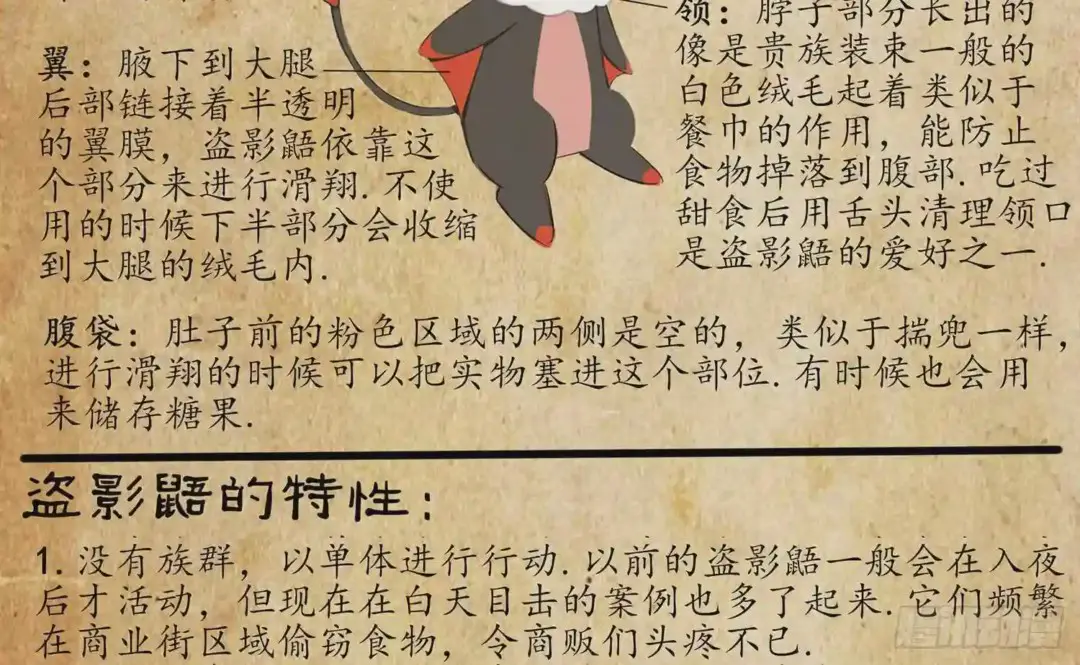 翼：腋下到大腿
后部链接着半透明
的翼膜，盗影鼯依靠这
个部分来进行滑翔.不使
用的时候下半部分会收缩
到大腿的绒毛内.
领：脖子部分长出的
像是贵族装束一般的
白色绒毛起着类似于
餐巾的作用，能防止
食物掉落到腹部.吃过
甜食后用舌头清理领口
是盗影鼯的爱好之一.
腹袋：肚子前的粉色区域的两侧是空的，类似于揣兜一样，
进行滑翔的时候可以把实物塞进这个部位.有时候也会用
来储存糖果.
盗影鼯的特性：
1.没有族群，以单体进行行动.以前的盗影鼯一般会在入夜
后才活动，但现在在白天目击的案例也多了起来.它们频繁
在商业街区域偷窃食物，令商贩们头疼不已.